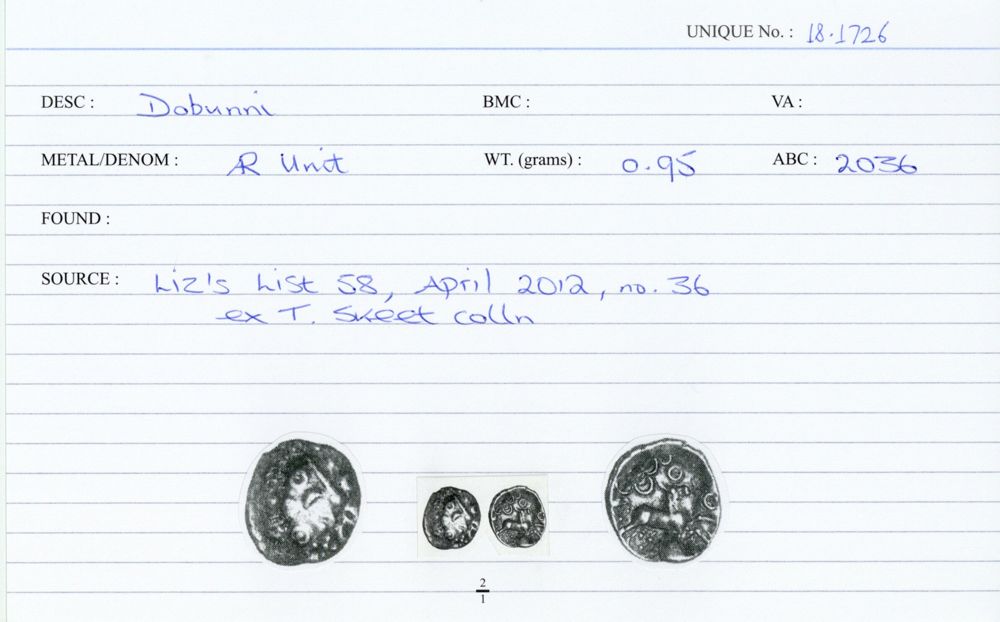 UNIQUE No. : 18.1726
DESC : Dobunni BMC : VA :
METAL/DENOM : AR Unit WT. (grams) : 0.95 ABC : 2036
FOUND :
SOURCE : Liz's List 58, April 2012, no. 36
ex T. Skeet colln
2
1